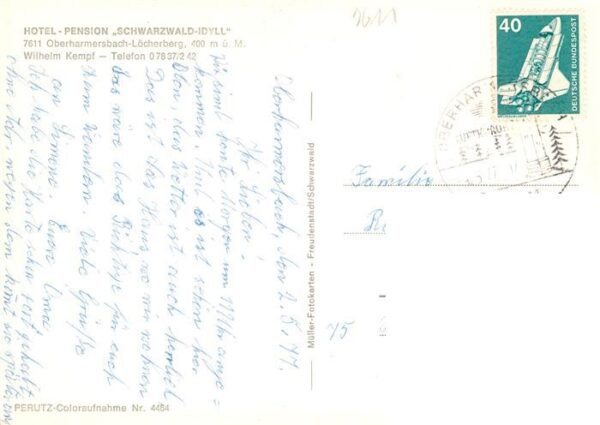 HOTEL - PENSION „SCHWARZWALD-IDYLL"
7611 Oberharmersbach-Löcherberg, 400 m ü. M.
Wilhelm Kempf — Telefon 0 78 37/2 42
3611
40
DEUTSCHE BUNDESPOST
Oberharmersbach, den 2.5.77.
Ihr Lieben!
Wir sind heute Morgen um 11 Uhr ange=
kommen. Und es ist schön hier
Oben, das Wetter ist auch herrlich
Das ist das Haus wo wir wohnen
das wäre das Richtige für euch
zum Viele Grüße
an Simone. Eure Oma
Ich habe die Karte schon fort gehabt
ohne kommt sie später an
Familie
75
Müller-Fotokarten - Freudenstadt/Schwarzwald
PERUTZ-Coloraufnahme Nr. 4464